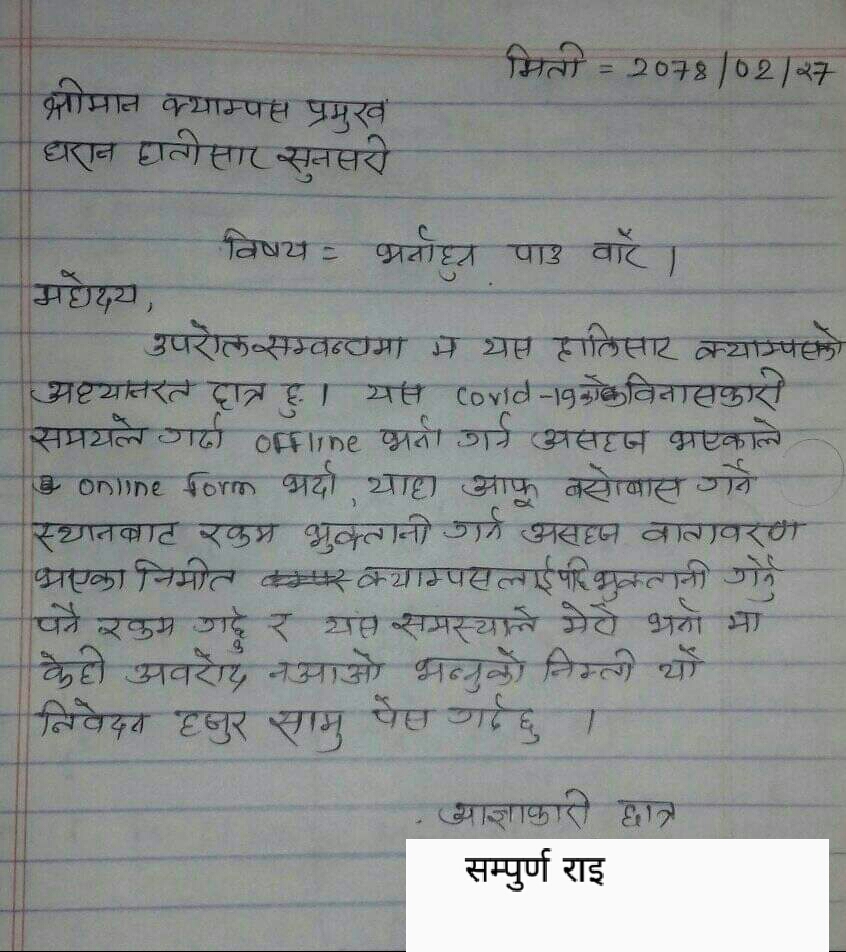 मिती = 2078/02/27
श्रीमान क्याम्पस प्रमुख
धरान हातीसार सुनसरी
विषय = भर्नाहुन पाउ बारे ।
महोदय,
उपरोक्त सम्बन्धमा म यस हातिसार क्याम्पसको
अध्यानरत छात्र हु । यस covid-19को विनासकारी
समयले गर्दा offline भर्ना गर्न असहज भएकाले
online form भर्दा , याहा आफू बसोबास गर्ने
स्थानबाट रकम भुक्तानी गर्न असहज वातावरण
भएका निमीत क्याम्पसलाई पछि भुक्तानी गर्नु
पर्ने रकम गर्छु र यस समस्याले मेरो भर्ना मा
केही अवरोद नआओ भन्नुको निम्ती यो
निवेदन हजुर सामु पेस गर्दछु ।
आज्ञाकारी छात्र
सम्पुर्ण राइ